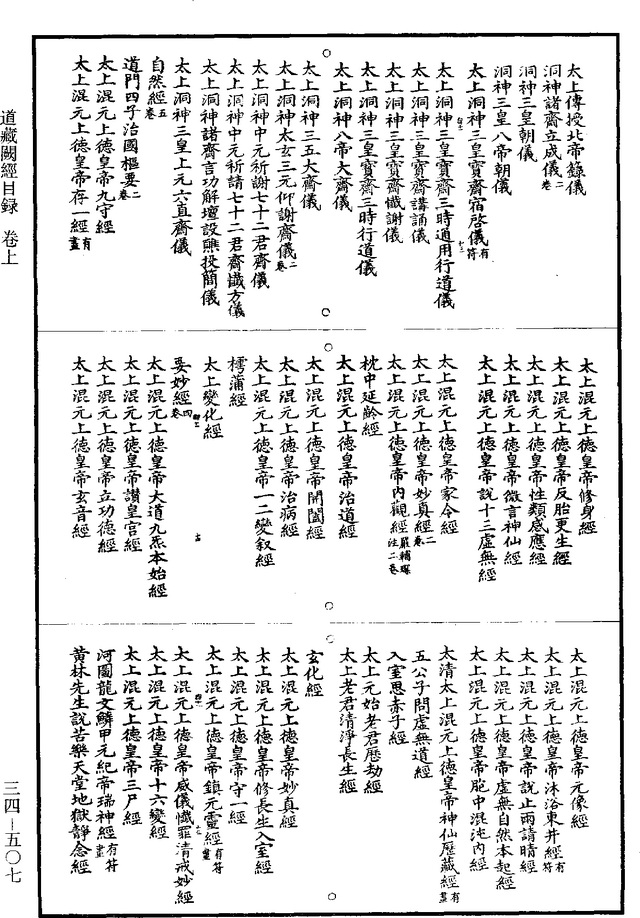 太上傳授北帝籙儀
洞神諸齋立成儀二卷
洞神三皇朝儀
洞神三皇八帝朝儀
太上洞神三皇寶齋宿啓儀有符
太上洞神三皇寶齋三時通用行道儀
太上洞神三皇寶齋講誦儀
太上洞神三皇寶齋懺謝儀
太上洞神三皇寶齋三時行道儀
太上洞神八帝大齋儀
太上洞神三五大齋儀
太上洞神太玄三元仰謝齋儀二卷
太上洞神中元祈謝七十二君齋儀
太上洞神中元祈請七十二君齋懺方儀
太上洞神諸齋言功解壇設醮投簡儀
太上洞神三皇上元六直齋儀
自然經五卷
道門四子治國樞要二卷
太上混元上德皇帝九守經
太上混元上德皇帝存一經有畫
太上混元上德皇帝修身經
太上混元上德皇帝反胎更生經
太上混元上德皇帝性類感應經
太上混元上德皇帝微言神仙經
太上混元上德皇帝說十三虛無經
太上混元上德皇帝家令經
太上混元上德皇帝妙真經二卷
太上混元上德皇帝內觀經嚴輔璨注二卷
枕中延齡經
太上混元上德皇帝治道經
太上混元上德皇帝開闔經
太上混元上德皇帝治病經
太上混元上德皇帝一二變叙經
樗蒲經
太上變化經
要妙經四卷
太上混元上德皇帝大道九炁本始經
太上混元上德皇帝讚皇宮經
太上混元上德皇帝立功德經
太上混元上德皇帝玄音經
太上混元上德皇帝元像經
太上混元上德皇帝沐浴東井經有符
太上混元上德皇帝說止雨請晴經
太上混元上德皇帝虛無自然本起經
太上混元上德皇帝胞中混沌內經
太清太上混元上德皇帝神仙歷藏經有畫
五公子問虛無道經
入室思赤子經
太上元始老君歷劫經
太上老君清淨長生經
玄化經
太上混元上德皇帝妙真經
太上混元上德皇帝修長生入室經
太上混元上德皇帝守一經
太上混元上德皇帝鎮元靈經有符畫
太上混元上德皇帝威儀懺罪清戒妙經
太上混元上德皇帝十六變經
太上混元上德皇帝三尸經
河圖龍文鱗甲元紀帝瑞神經有符畫
黃林先生說苦樂天堂地獄靜念經
道藏闕經目録 卷上
三四—五〇七